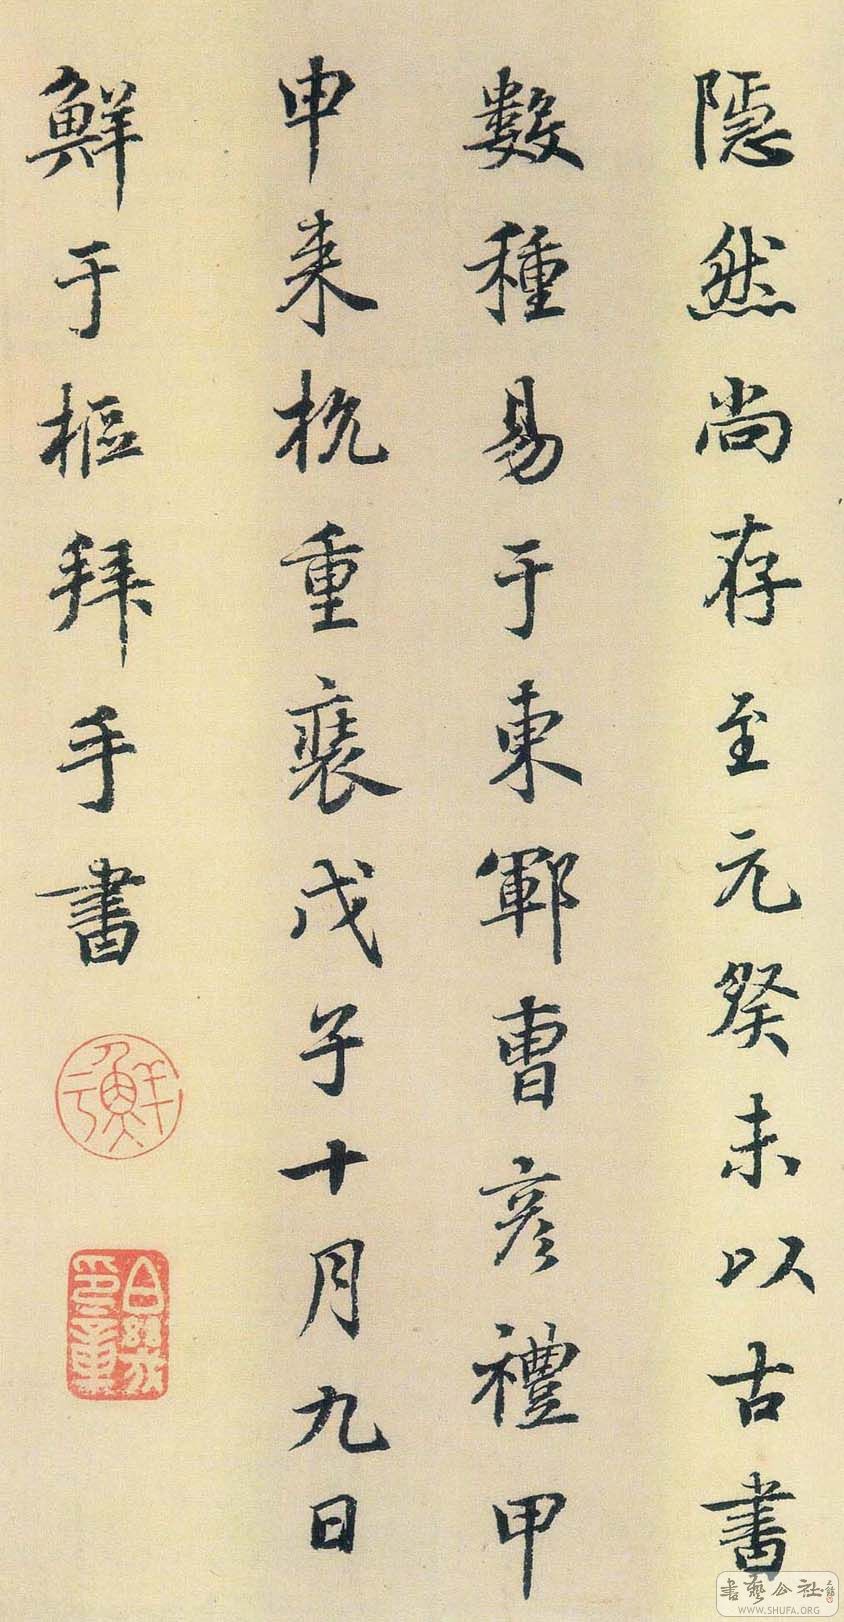 隱然尚存至元癸未以古書
數種易于東鄆曹彦禮甲
申来杭重裝戊子十月九日
鮮于樞拜手書
鮮于
書藝公社
WWW.SHUFA.ORG